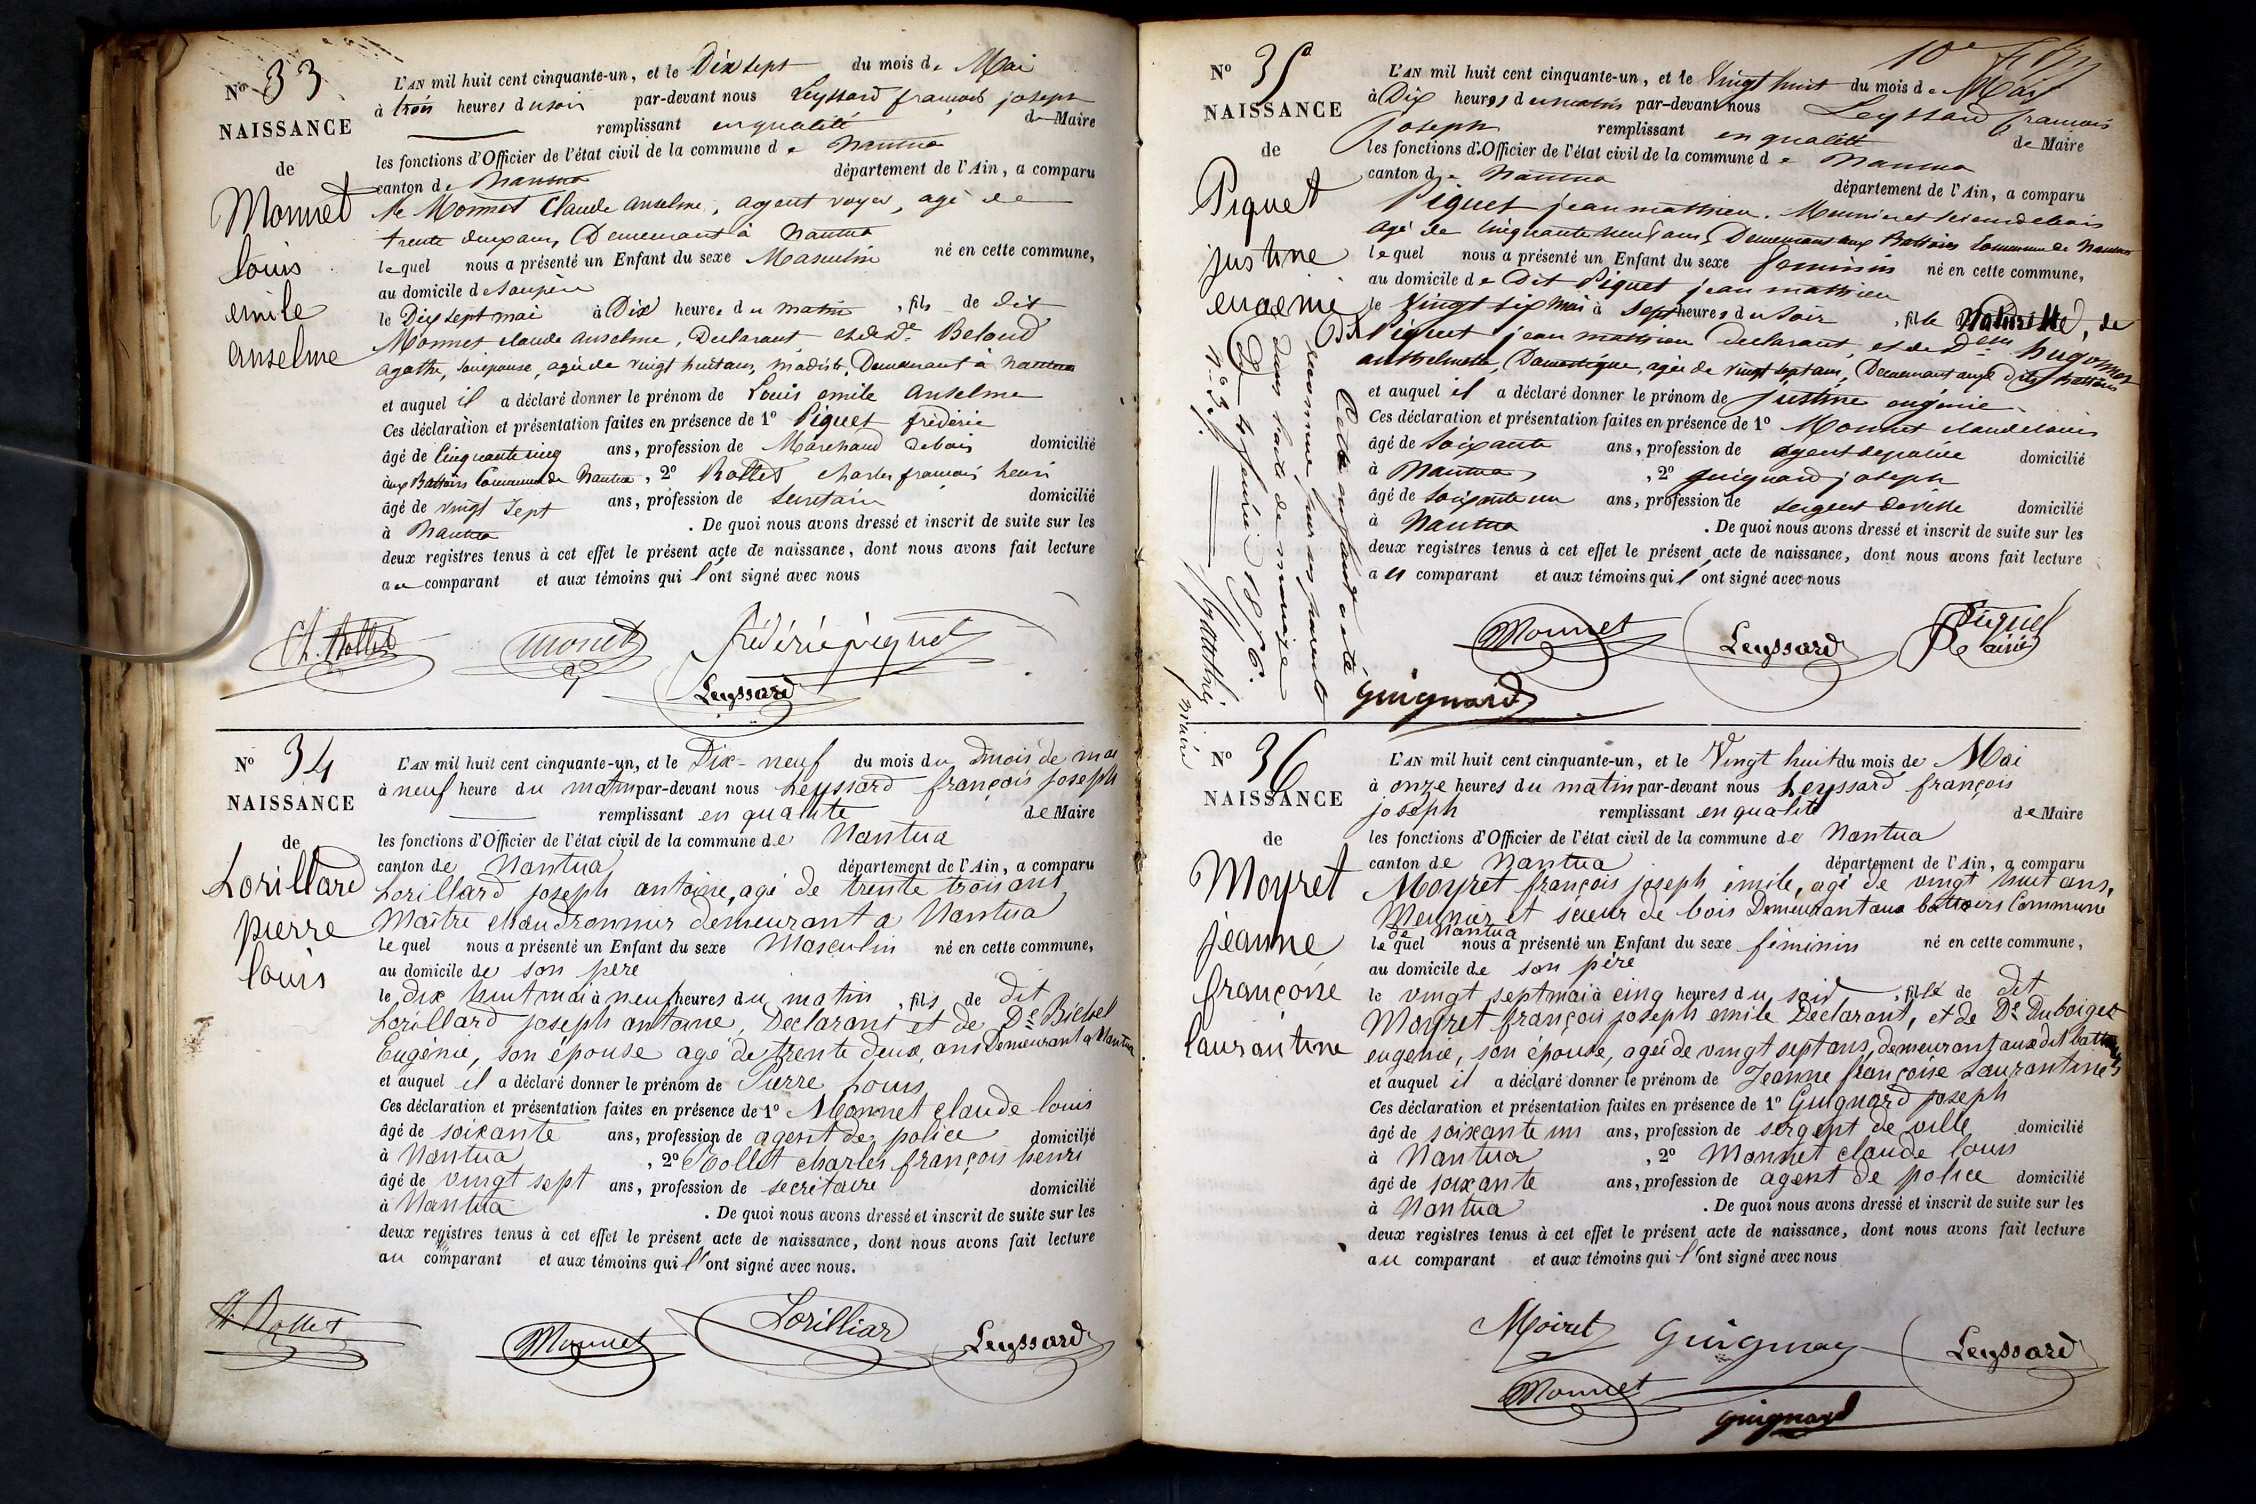 Nº 33
NAISSANCE
de
Monnet
louis
emile
anselme
L'AN mil huit cent cinquante-un, et le Dix sept du mois de Mai
à trois heures du soir par-devant nous Leyssard françois joseph
remplissant en qualité de Maire
les fonctions d'Officier de l'état civil de la commune de Nantua
canton de Nantua département de l'Ain, a comparu
Monnet Claude anselme, agent voyer, agé de
trente deux ans, Demeurant à Nantua
lequel nous a présenté un Enfant du sexe Masculin né en cette commune,
au domicile de son père
le Dix sept mai à Dix heures du matin, fils de dit
Monnet claude anselme, Declarant et de De. Beloud
agathe, son épouse, agée de vingt huit ans, modiste, Demeurant à Nantua
et auquel il a déclaré donner le prénom de Louis emile anselme
Ces déclaration et présentation faites en présence de 1º Piquet fréderic
âgé de Cinquante cinq ans, profession de Marchand de bois domicilié
aux Battoirs Commune de Nantua, 2º Rollet charles françois henri
âgé de vingt sept ans, profession de secretaire domicilié
à Nantua. De quoi nous avons dressé et inscrit de suite sur les
deux registres tenus à cet effet le présent acte de naissance, dont nous avons fait lecture
au comparant et aux témoins qui l'ont signé avec nous
Ch. Rollet Monet frédéric piquet
Leyssard
Nº 34
NAISSANCE
de
Lorillard
pierre
louis
L'AN mil huit cent cinquante-un, et le Dix-neuf du mois du mois de mai
à neuf heure du matin par-devant nous Leyssard françois joseph
remplissant en qualité de Maire
les fonctions d'Officier de l'état civil de la commune de Nantua
canton de Nantua département de l'Ain, a comparu
Lorillard joseph antoine, agé de trente trois ans
Maître chaudronnier demeurant a Nantua
lequel nous a présenté un Enfant du sexe Masculin né en cette commune,
au domicile de son père
le dix huit mai à neuf heures du matin, fils de dit
Lorillard joseph antoine, Declarant et de De Bichel
Eugénie, son épouse agé de trente deux ans Demeurant a Nantua
et auquel il a déclaré donner le prénom de Pierre Louis
Ces déclaration et présentation faites en présence de 1º Monnet claude louis
âgé de soixante ans, profession de agent de police domicilié
à Nantua, 2º Rollet charles françois henri
âgé de vingt sept ans, profession de secrétaire domicilié
à Nantua. De quoi nous avons dressé et inscrit de suite sur les
deux registres tenus à cet effet le présent acte de naissance, dont nous avons fait lecture
au comparant et aux témoins qui l'ont signé avec nous.
Ch Rollet Monnet Lorilliard Leyssard
10e
Nº 35
NAISSANCE
de
Piquet
justine
eugenie
L'AN mil huit cent cinquante-un, et le Vingt huit du mois de Mai
à Dix heures du matin par-devant nous Leyssard françois
joseph remplissant en qualité de Maire
les fonctions d'Officier de l'état civil de la commune de Nantua
canton de Nantua département de l'Ain, a comparu
Piquet jean mathieu, Meunier et scieur de bois
agé de Cinquante neuf ans, Demeurant aux Battoirs Commune de Nantua
lequel nous a présenté un Enfant du sexe feminin né en cette commune,
au domicile de dit Piquet jean mathieu
le Vingt six mai à Sept heures du soir, fille Naturelle, de
dit Piquet jean mathieu Declarant, et de Delle hugonnet
anthelmette, Domestique, agée de vingt sept ans, Demeurant aux dits battoirs
et auquel il a déclaré donner le prénom de justine eugénie
Ces déclaration et présentation faites en présence de 1º Monnet claude louis
âgé de soixante ans, profession de agent de police domicilié
à Nantua, 2º guignard joseph
âgé de soixante un ans, profession de sergent de ville domicilié
à Nantua. De quoi nous avons dressé et inscrit de suite sur les
deux registres tenus à cet effet le présent acte de naissance, dont nous avons fait lecture
au comparant et aux témoins qui l'ont signé avec nous
Cette enfant a été
reconnue par ses parents
dans l'acte de mariage
Du 4 février 1856.
Nº 3.
maire
Monnet Leyssard Piquet ainé
Guignard
Nº 36
NAISSANCE
de
Moyret
jeanne
françoise
laurantine
L'AN mil huit cent cinquante-un, et le Vingt huit du mois de Mai
à onze heures du matin par-devant nous Leyssard françois
joseph remplissant en qualité de Maire
les fonctions d'Officier de l'état civil de la commune de Nantua
canton de Nantua département de l'Ain, a comparu
Moyret françois joseph émile, agé de vingt huit ans,
Meunier et scieur de bois Demeurant aux battoirs Commune
de Nantua
lequel nous a présenté un Enfant du sexe féminin né en cette commune,
au domicile de son père
le vingt sept mai à cinq heures du soir, fille de dit
Moyret françois joseph emile Declarant, et de De Duboiget
eugenie, son épouse, agée de vingt sept ans, demeurant aux dit battoirs
et auquel il a déclaré donner le prénom de Jeanne françoise Laurantine
Ces déclaration et présentation faites en présence de 1º Guignard joseph
âgé de soixante un ans, profession de sergent de ville domicilié
à Nantua, 2º Monnet claude louis
âgé de soixante ans, profession de agent de police domicilié
à Nantua. De quoi nous avons dressé et inscrit de suite sur les
deux registres tenus à cet effet le présent acte de naissance, dont nous avons fait lecture
au comparant et aux témoins qui l'ont signé avec nous
Moiret Guignar Leyssard
Monnet
guignard